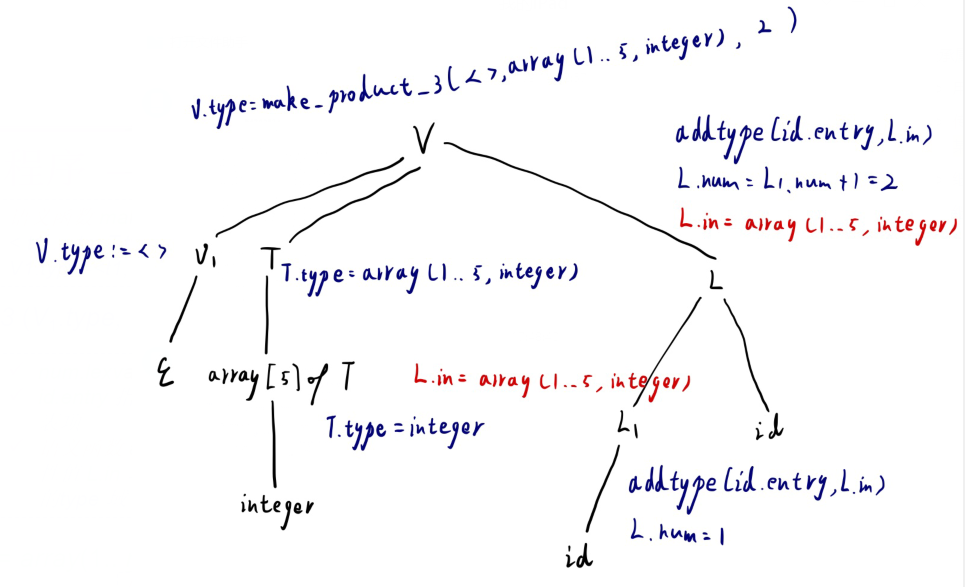 V.type=make_product_3(<>,array(1..5,integer),2)
V
addtype(id.entry,L.in)
L.num=L1.num+1=2
L.in=array(1..5,integer)
V.type:=<> V1 T
T.type=array(1..5,integer)
L
ε array[5]of T L.in=array(1..5,integer)
T.type=integer
L1 id
addtype(id.entry,L.in)
integer
L.num=1
id